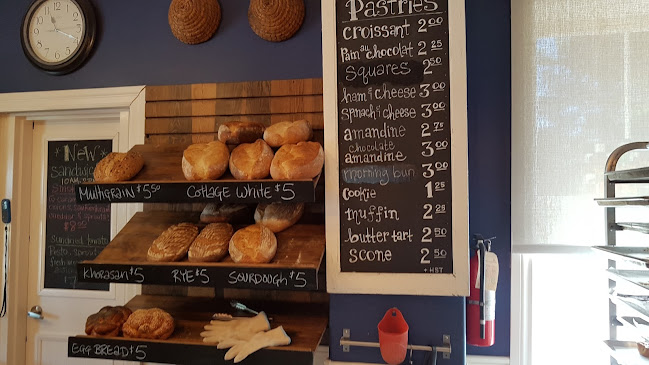 Pastries
croissant 2 00
Pain au chocolat 2 25
squares 2 50
ham & cheese 3 00
spinach & cheese 3 00
amandine 2 75
chocolate amandine 3 00
morning bun 3 00
cookie 1 25
muffin 2 25
butter tart 2 25
scone 2 50
+ HST
MULTIGRAIN $5.50
COTTAGE WHITE $5
KHORASAN $5
RYE $5
SOURDOUGH $5
EGG BREAD $5
New
sandwich